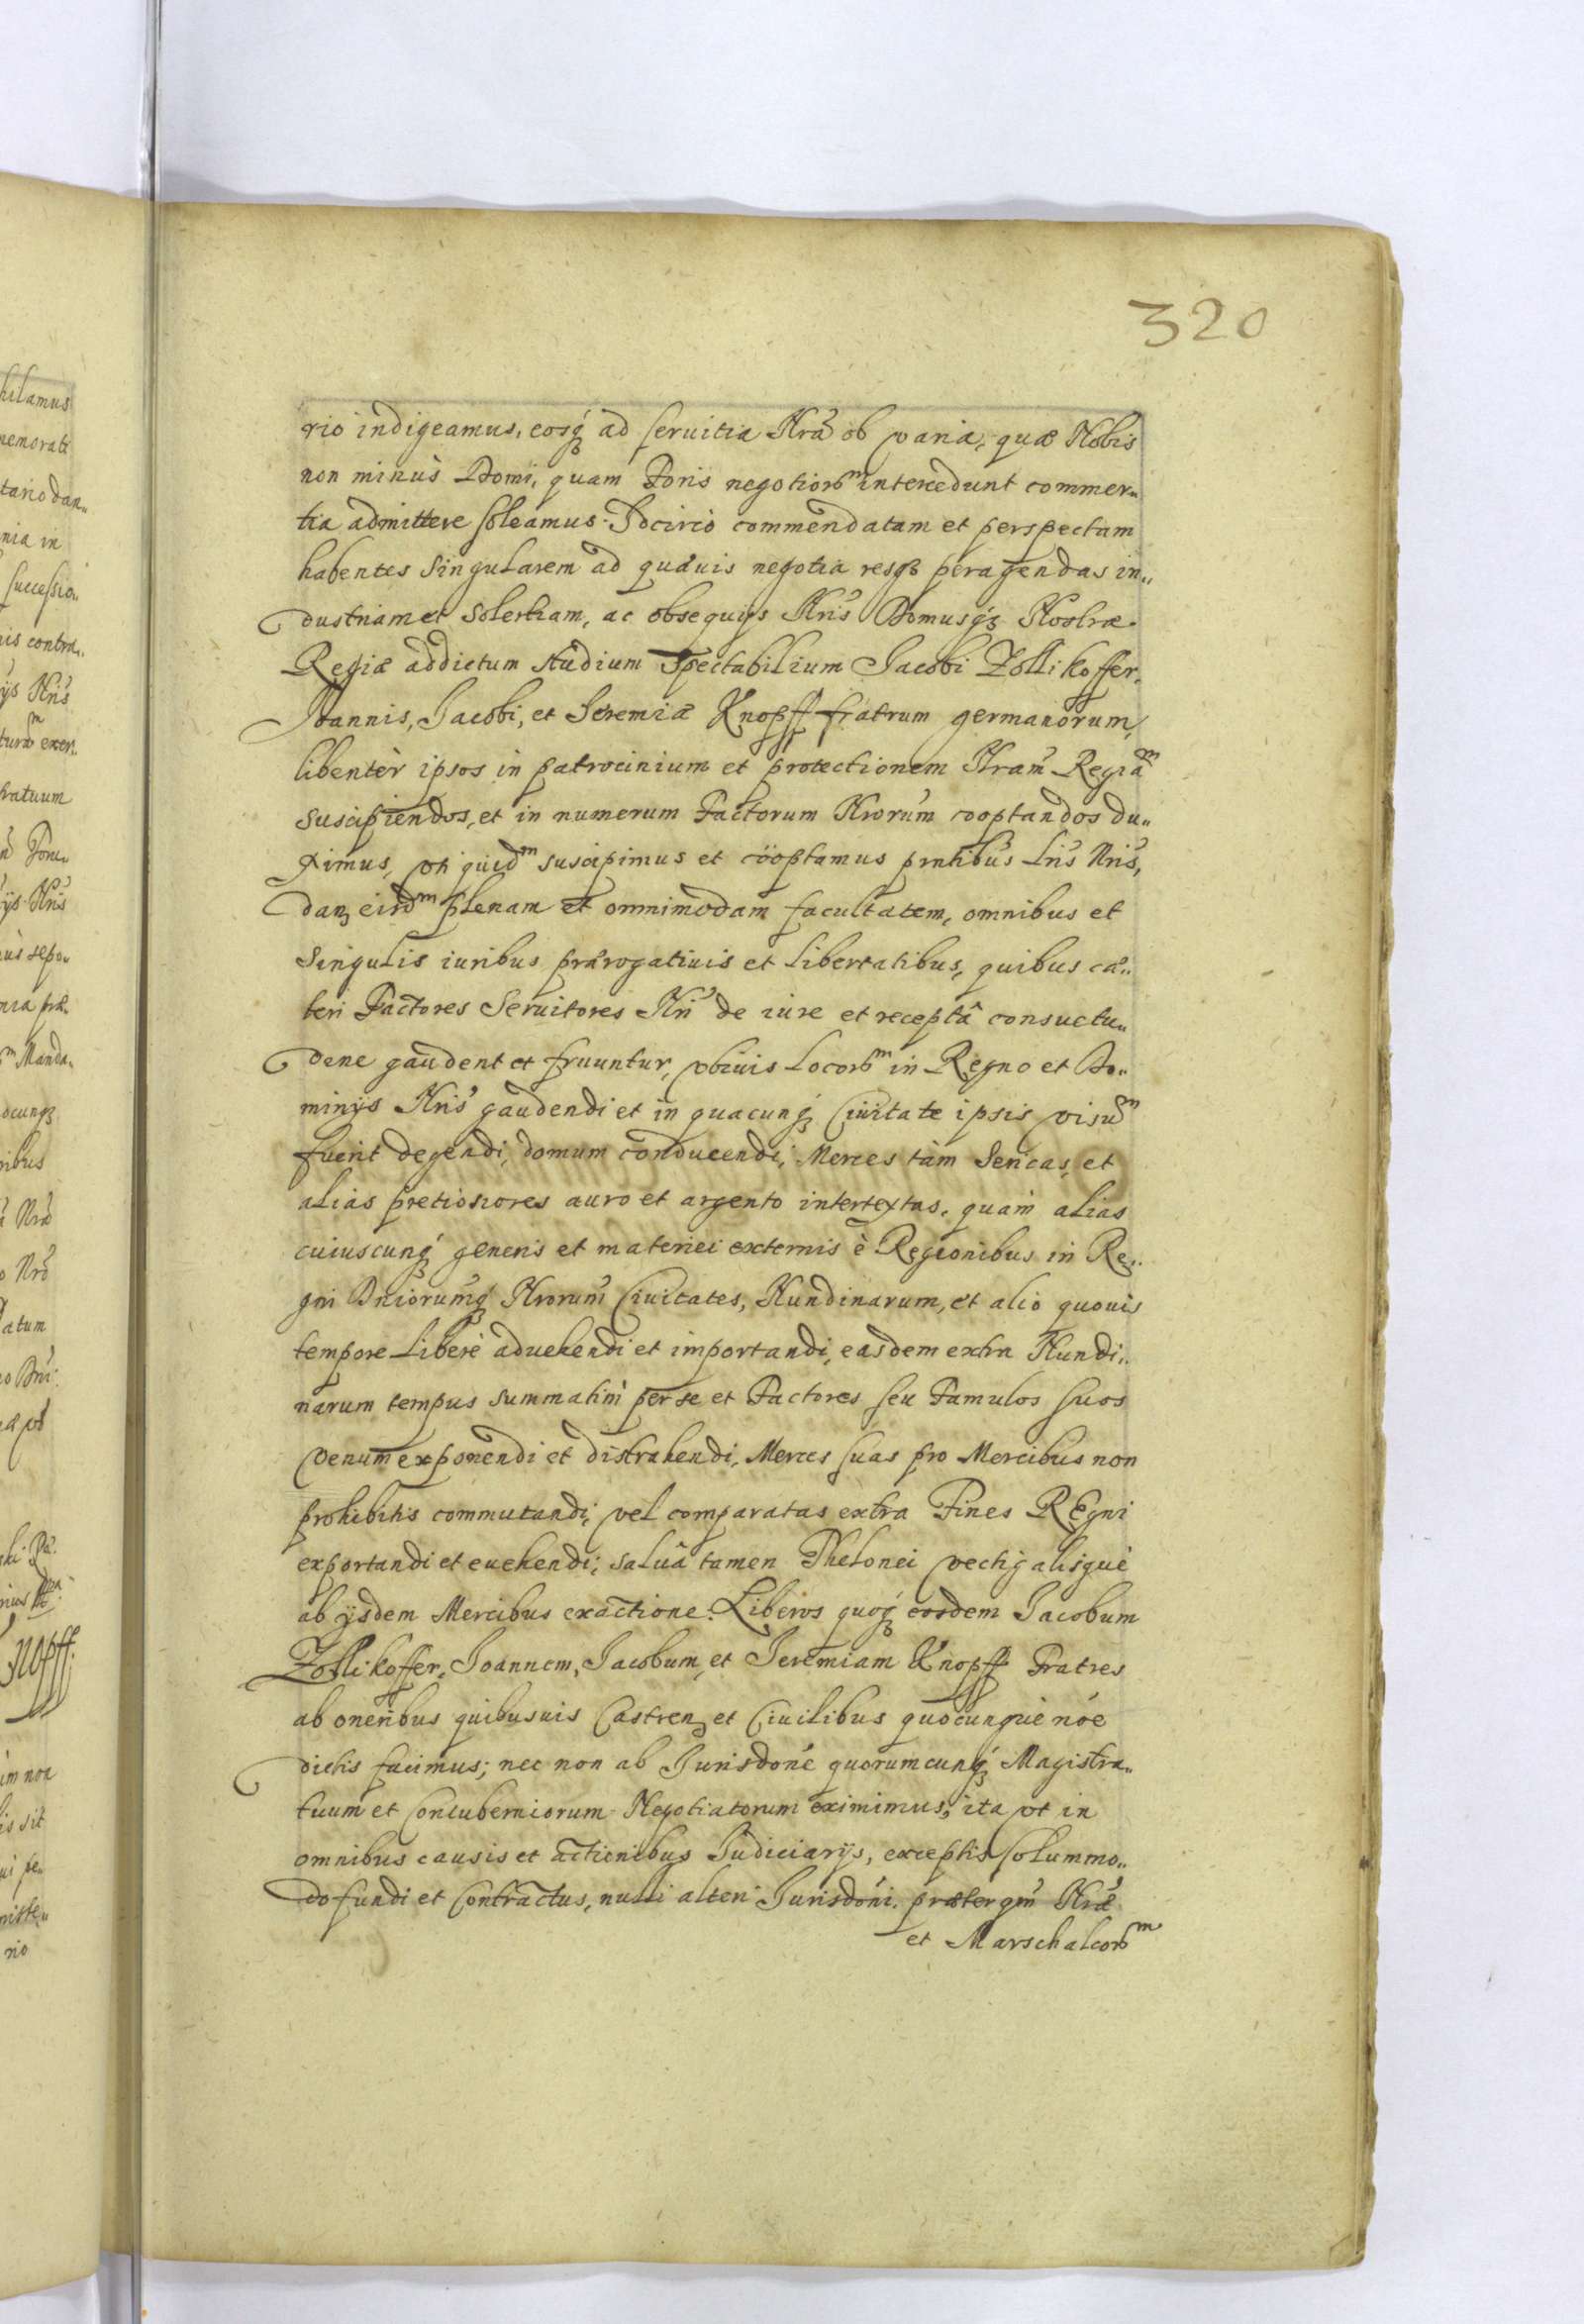 320
rio indigeamus, eosq́ꝫ ad seruitia Nrã ob varia, quæ Nobis
non minùs Domi, quam Foris negotiorᵐ intercedunt commer„
tia admittere soleamus. Idcircò commendatam et perspectam
habentes singularem ad quævis negotia resqꝫ peragendas in„
dustriam et solertiam, ac obsequijs Nris̃ Domusq́ꝫ Nostræ
Regiæ addictum studium Spectabilium Jacobi Zollikoffer,
Joannis, Jacobi, et Jeremiæ Knopff fratrum germanorum,
libentèr ipsos in patrocinium et protectionem Nram̃ Regiãᵐ
suscipiendos, et in numerum Factorum Nrorum̃ cooptandos du„
ximus, vti quidᵐ suscipimus et cöoptamus pntibus̃ Lris̃ Nris̃,
danꝫ eisdᵐ plenam et omnimodam facultatem, omnibus et
singulis iuribus prærogatiuis et libertatibus, quibus cæ„
teri Factores Seruitores Nrĩ de iure et receptâ consuetu„
dene gaudent et fruuntur, vbiuis Locorᵐ in Regno et Do„
minijs Nris̃ gaudendi et in quacunq́ꝫ Ciuitate ipsis visũᵐ
fuerit degendi, domum conducendi, Merces tàm Sericas, et
alias pretiosiores auro et argento intertextas, quàm alias
cuiuscunq́ꝫ generis et materiei externis è Regionibus in Re„
gni Dniorumq́ꝫ Nrorum̃ Ciuitates, Nundinarum, et alio quouis
tempore Liberè aduehendi et importandi, easdem extra Nundi„
narum tempus summatim̀ per se et Factores seu Famulos suos
venum exponendi et distrahendi, Merces suas pro Mercibus non
prohibitis commutandi, vel comparatas extra Fines REgni
exportandi et euehendi; saluâ tamen Thelonei vectigalisquè
ab ijsdem Mercibus exactione. Liberos quoq́ꝫ eosdem Jacobum
Zollikoffer, Joannem, Jacobum, et Jeremiam Knopff Fratres
ab oneribus quibusuis Castrenꝫ et Ciuilibus quocunquè nõe
dictis facimus; nec non ab Jurisdonẽ quorumcunq́ꝫ Magistra„
tuum et Contuberniorum Negotiatorum eximimus, ita vt in
omnibus causis et actionibus Judiciarijs, exceptis solummo„
do fundi et Contractus, nulli alteri Jurisdonĩ, præterqm̃ Nræ̃
et Marschalcorᵐ